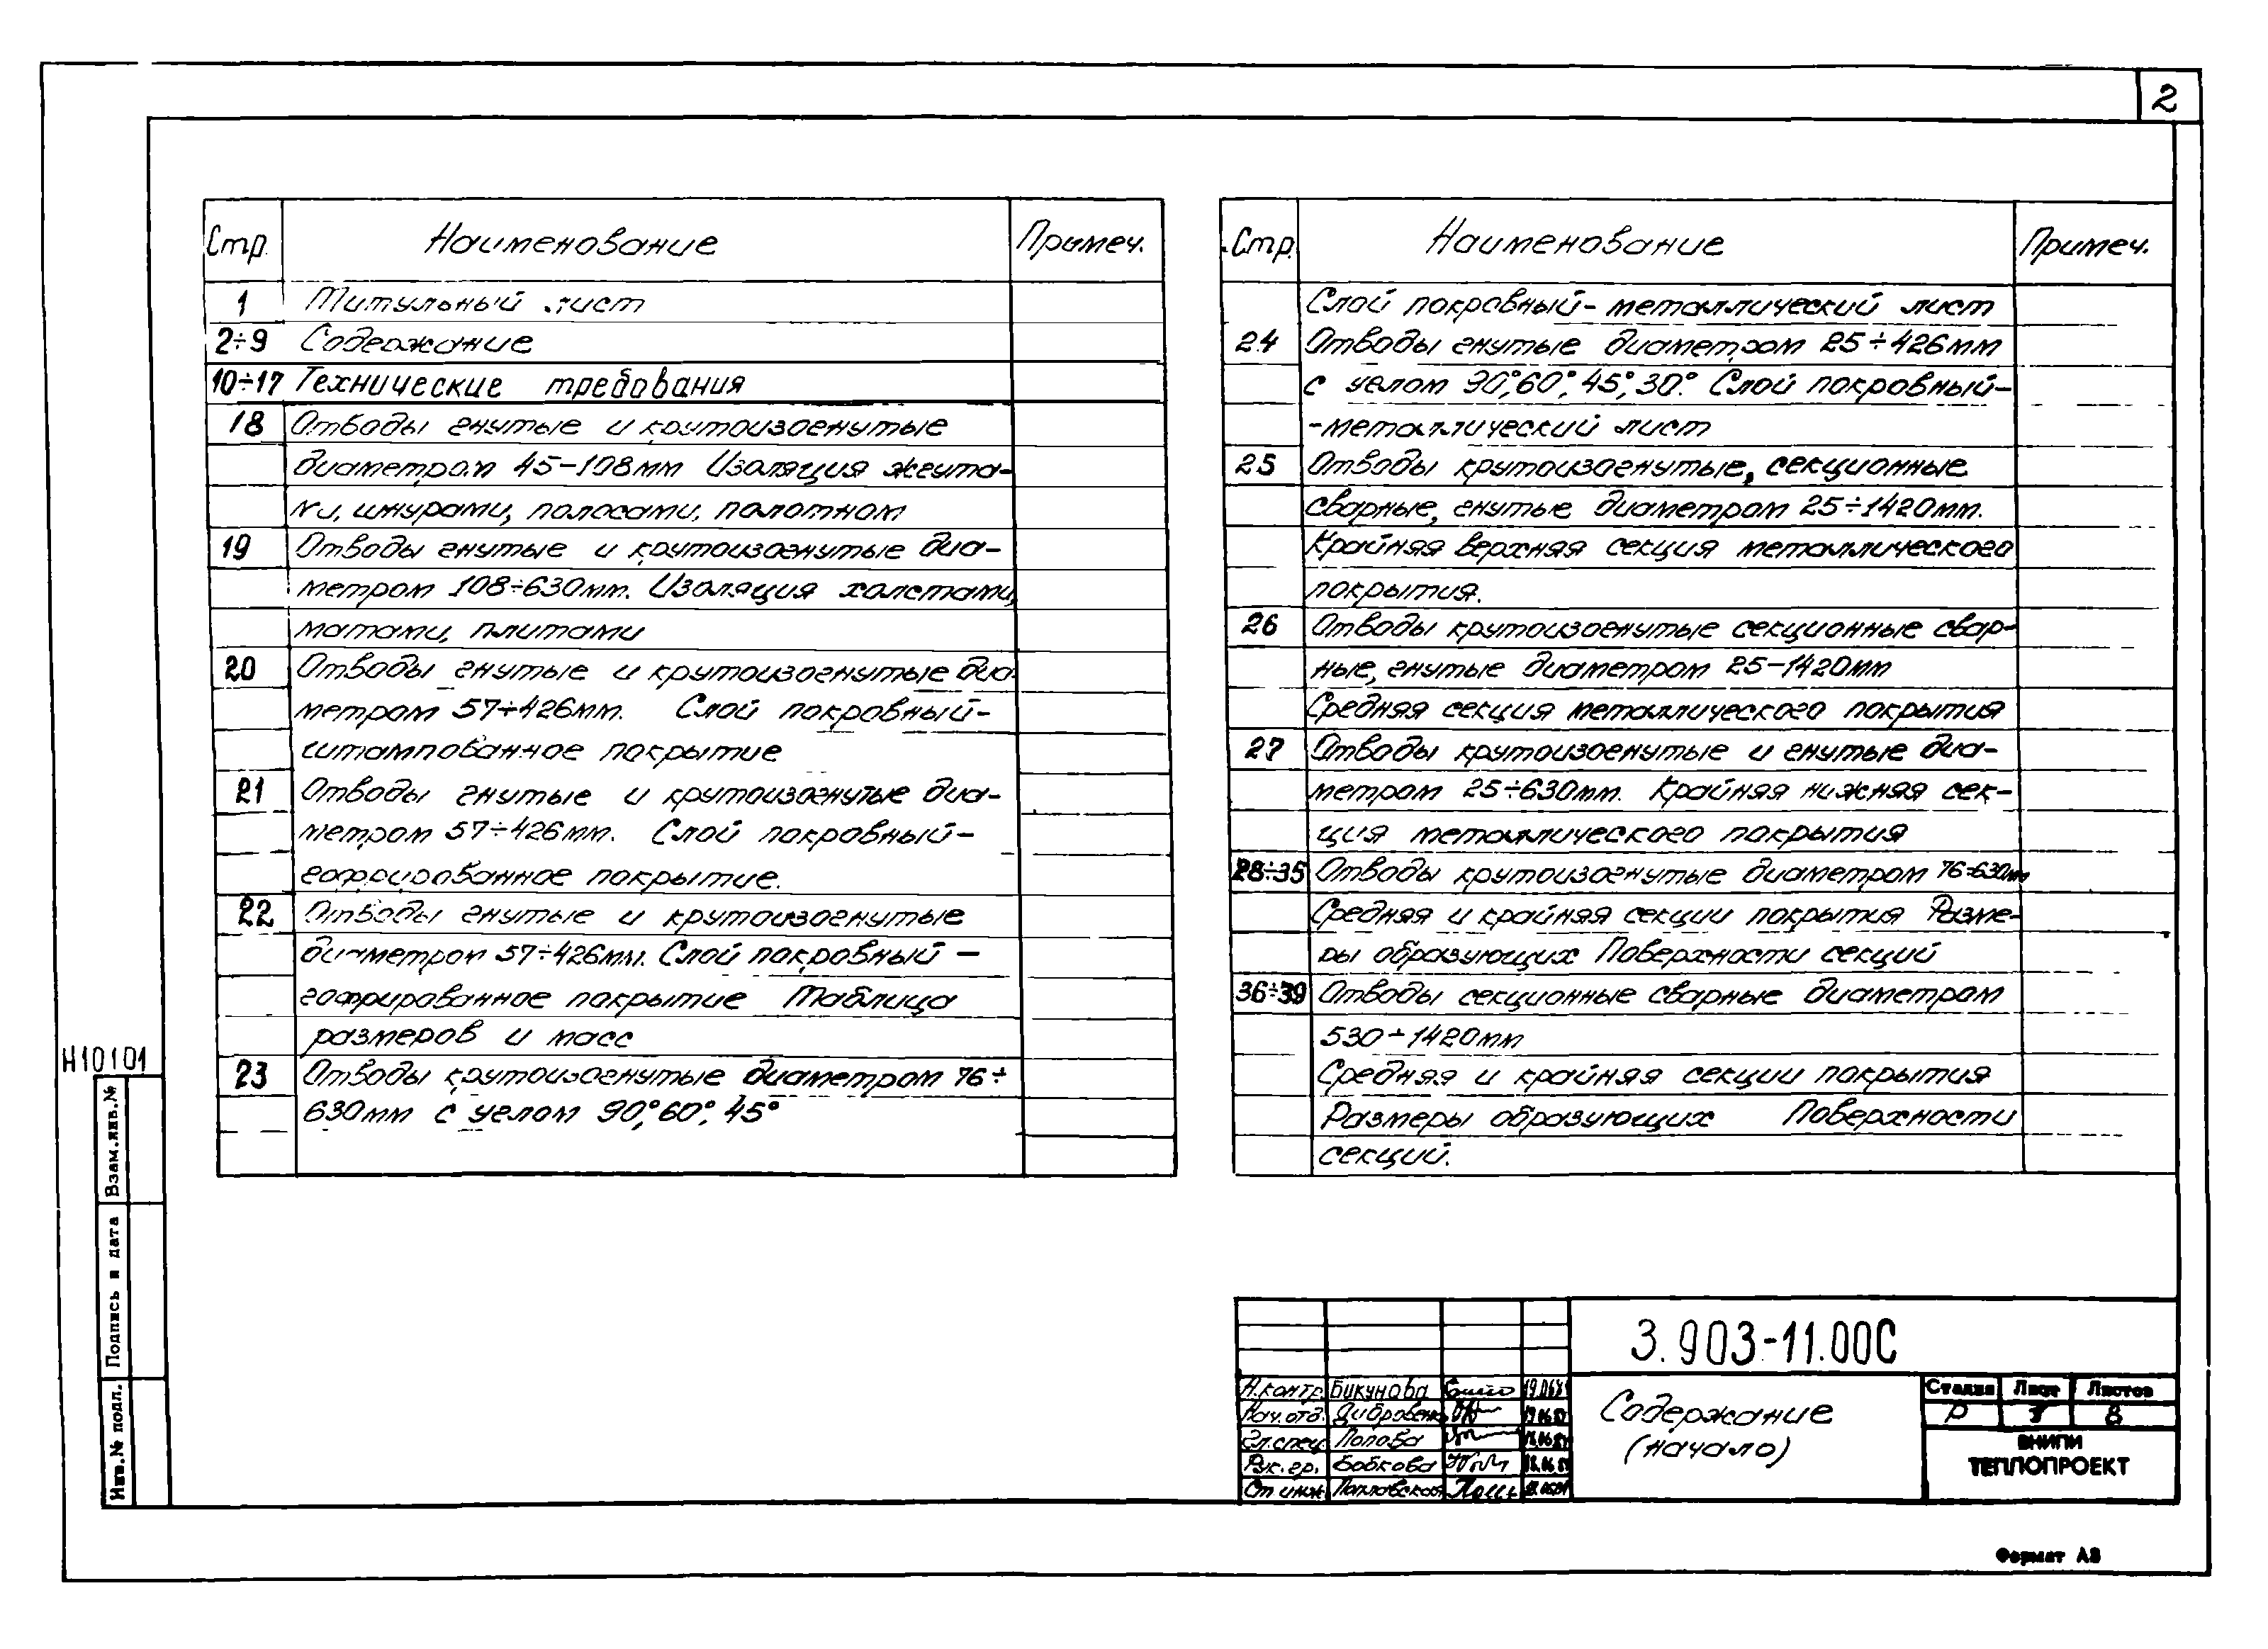 2
Стр. Наименование Примеч.
1 Титульный лист
2÷9 Содержание
10÷17 Технические требования
18 Отводы гнутые и крутоизогнутые
диаметром 45-108мм Изоляция жгута-
ми, шнурами, полосами, полотном
19 Отводы гнутые и крутоизогнутые диа-
метром 108÷630мм. Изоляция холстами,
матами, плитами
20 Отводы гнутые и крутоизогнутые диа-
метром 57÷426мм. Слой покровный-
штампованное покрытие
21 Отводы гнутые и крутоизогнутые диа-
метром 57÷426мм. Слой покровный-
гофрированное покрытие.
22 Отводы гнутые и крутоизогнутые
диаметром 57÷426мм. Слой покровный-
гофрированное покрытие Таблица
размеров и масс
23 Отводы крутоизогнутые диаметром 76÷
630мм с углом 90°, 60°, 45°
Стр. Наименование Примеч.
Слой покровный-металлический лист
24 Отводы гнутые диаметром 25÷426мм
с углом 90°, 60°, 45°, 30°. Слой покровный-
-металлический лист
25 Отводы крутоизогнутые, секционные
сварные, гнутые диаметром 25÷1420мм.
Крайняя верхняя секция металлического
покрытия.
26 Отводы крутоизогнутые секционные свар-
ные, гнутые диаметром 25-1420мм
Средняя секция металлического покрытия
27 Отводы крутоизогнутые и гнутые диа-
метром 25÷630мм. Крайняя нижняя сек-
ция металлического покрытия
28÷35 Отводы крутоизогнутые диаметром 76÷630мм
Средняя и крайняя секции покрытия Разме-
ры образующих Поверхности секций
36÷39 Отводы секционные сварные диаметром
530÷1420мм
Средняя и крайняя секции покрытия
Размеры образующих Поверхности
секций.
Н10101
Взам.инв.№
Подпись и дата
Инв.№ подл.
3.903-11.00С
Н.контр. Бикунова
Нач.отд.
Гл.спец. Попова
Рук.гр. Бобкова
Ст инж.
Содержание
(начало)
Стадия Лист Листов
Р 8
ВНИПИ
ТЕПЛОПРОЕКТ
Формат А3